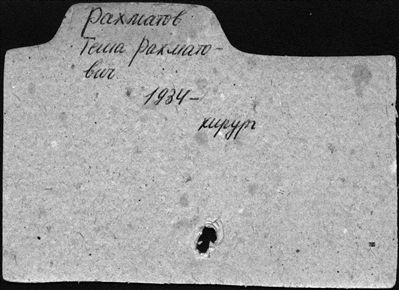 Рахматов
Теша Рахмато-
вич
1934-
хирург